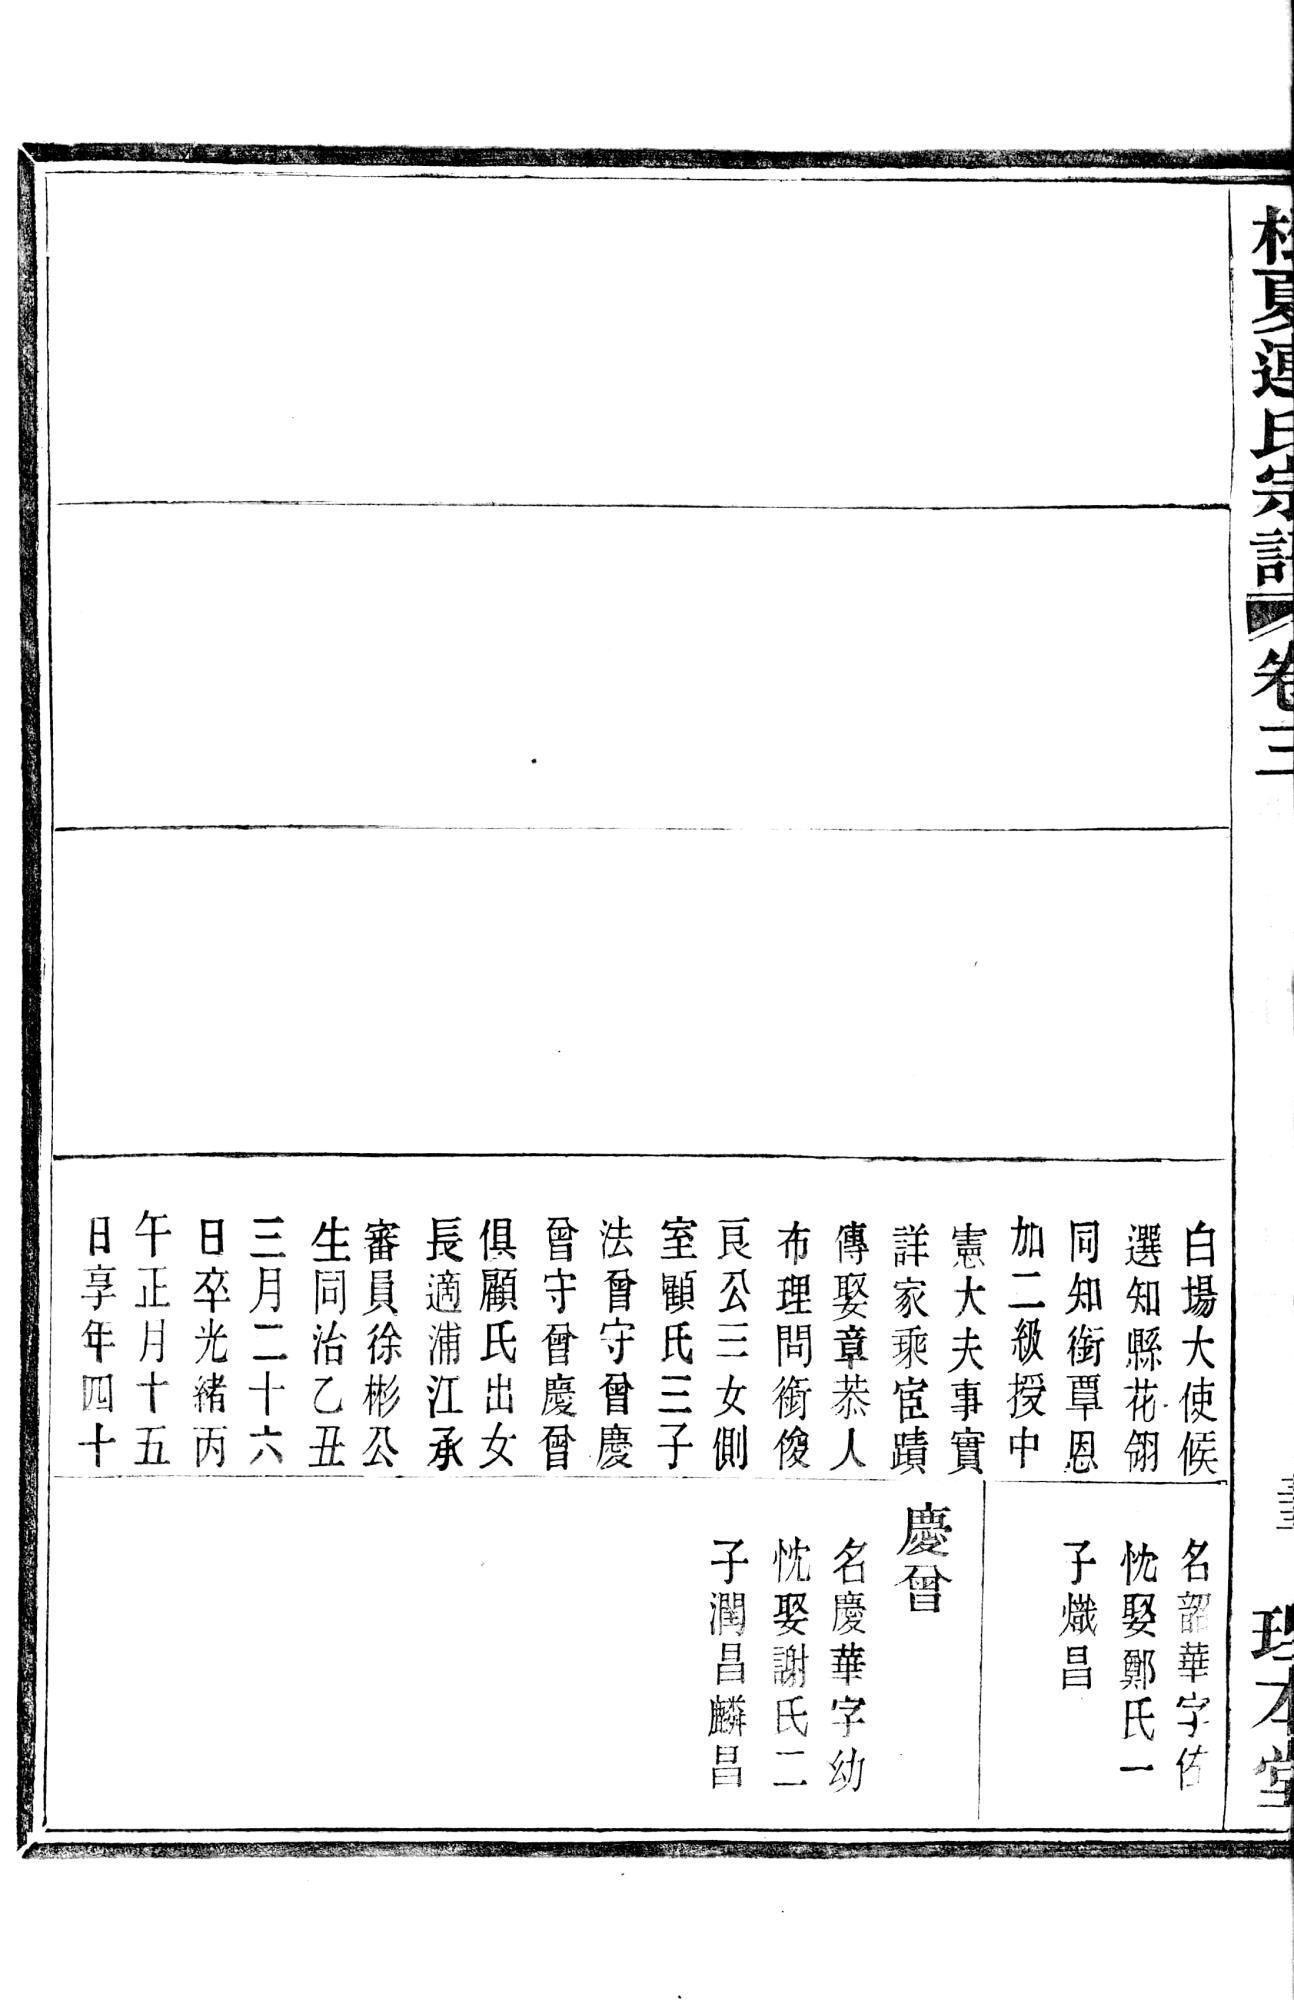 松夏連氏宗譜
卷三
理本堂
白場大使候
選知縣花翎
同知銜覃恩
加二級授中
憲大夫事實
詳家乘宦蹟
傳娶章恭人
布理問銜俊
良公三女側
室顧氏三子
法曾守曾慶
曾守曾慶曾
俱顧氏出女
長適浦江承
審員徐彬公
生同治乙丑
三月二十六
日卒光緒丙
午正月十五
日享年四十
名韶華字佑
忱娶鄭氏一
子熾昌
慶曾
名慶華字幼
忱娶謝氏二
子潤昌麟昌